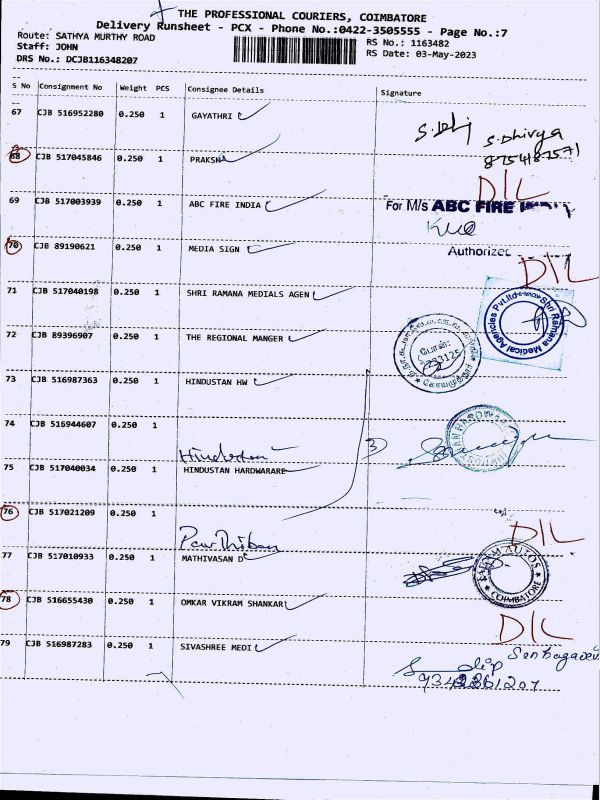 THE PROFESSIONAL COURIERS, COIMBATORE
Delivery Runsheet - PCX - Phone No.:0422-3505555 - Page No.:7
Route: SATHYA MURTHY ROAD
RS No.: 1163482
Staff: JOHN
RS Date: 03-May-2023
DRS No.: DCJB116348207
S No Consignment No Weight PCS Consignee Details Signature
67 CJB 516952280 0.250 1 GAYATHRI
S. Dhivya
8754187571
68 CJB 517045846 0.250 1 PRAKSH
D/L
69 CJB 517003939 0.250 1 ABC FIRE INDIA For M/s ABC FIRE
70 CJB 89190621 0.250 1 MEDIA SIGN
D/L
71 CJB 517040198 0.250 1 SHRI RAMANA MEDIALS AGEN
Shri Ramana Medical Agencies Pvt.Ltd
72 CJB 89396907 0.250 1 THE REGIONAL MANGER
73 CJB 516987363 0.250 1 HINDUSTAN HW
74 CJB 516944607 0.250 1
3
75 CJB 517040034 0.250 1 HINDUSTAN HARDWARARE
76 CJB 517021209 0.250 1
D/L
Parthiban
77 CJB 517010933 0.250 1 MATHIVASAN D
AUTOS COIMBATORE
78 CJB 516655430 0.250 1 OMKAR VIKRAM SHANKAR
D/L
79 CJB 516987283 0.250 1 SIVASHREE MEDI